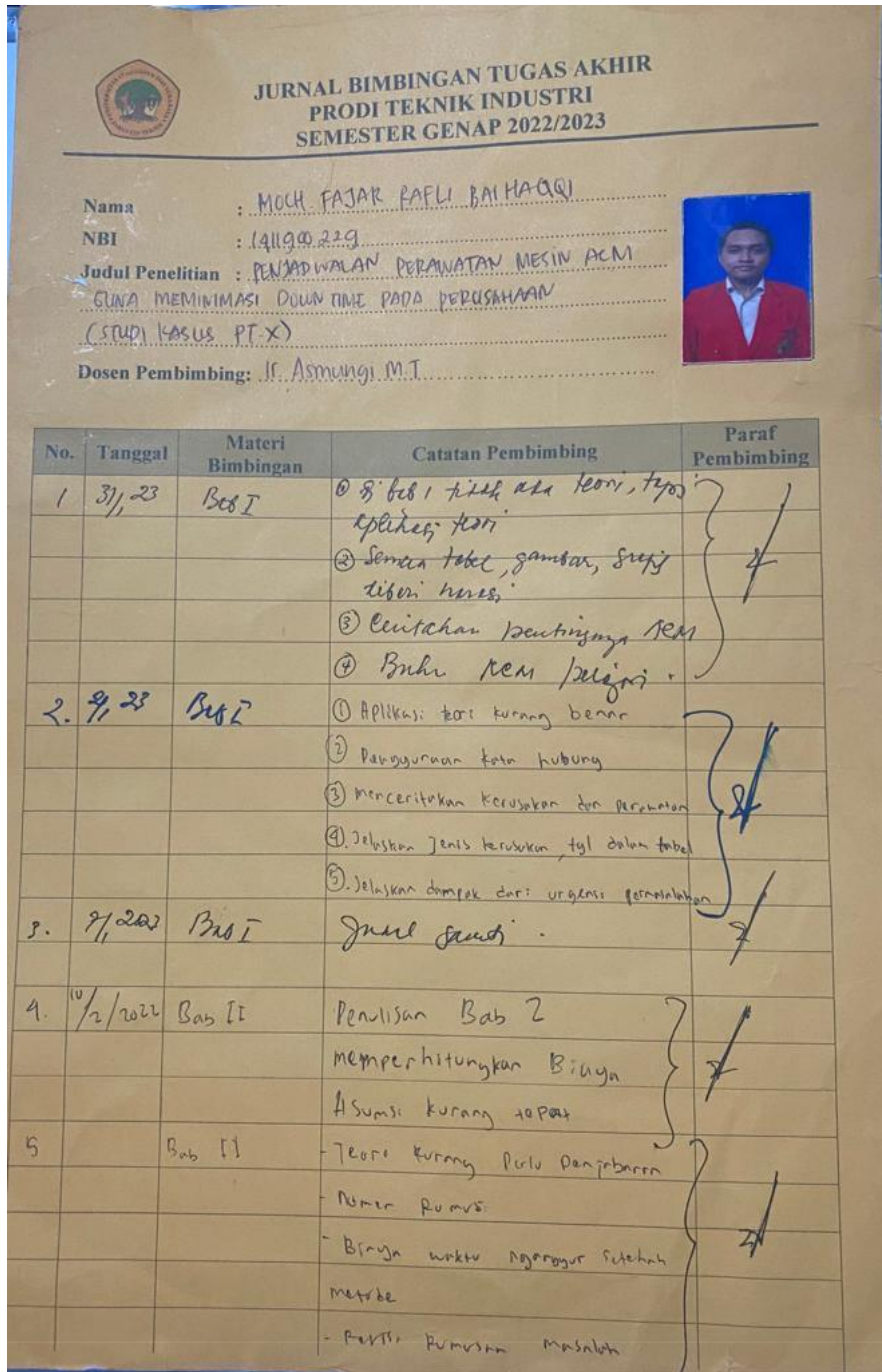 JURNAL BIMBINGAN TUGAS AKHIR
PRODI TEKNIK INDUSTRI
SEMESTER GENAP 2022/2023
Nama : MOCH FAJAR RAFLI BAIHAQQI
NBI : 1411900229
Judul Penelitian : PENJADWALAN PERAWATAN MESIN ACM
GUNA MEMINIMASI DOWN TIME PADA PERUSAHAAN
(STUDI KASUS PT.X)
Dosen Pembimbing: Ir. Asmungi M.T
No. Tanggal Materi Bimbingan Catatan Pembimbing Paraf Pembimbing
1 23 Bab I ① Di bab 1 tidak ada teori, tapi
aplikasi teori
② Semua tabel, gambar, grafis
diberi narasi
③ Ceritakan pentingnya RCM
④ Buku RCM
2. 23 Bab I ① Aplikasi teori kurang benar
② Penggunaan kata hubung
③ Menceritakan kerusakan dan perawatan
④. Jelaskan Jenis kerusakan tgl dalam tabel
⑤. Jelaskan dampak dari urgensi permasalahan
3. 2023 Bab I
4. 10/2/2022 Bab II Penulisan Bab 2
memperhitungkan Biaya
Asumsi kurang tepat
5 Bab II - Teori kurang Perlu Penjabaran
- Nomer Rumus
- Biaya waktu nganggur setelah
metode
- Revisi Rumusan masalah